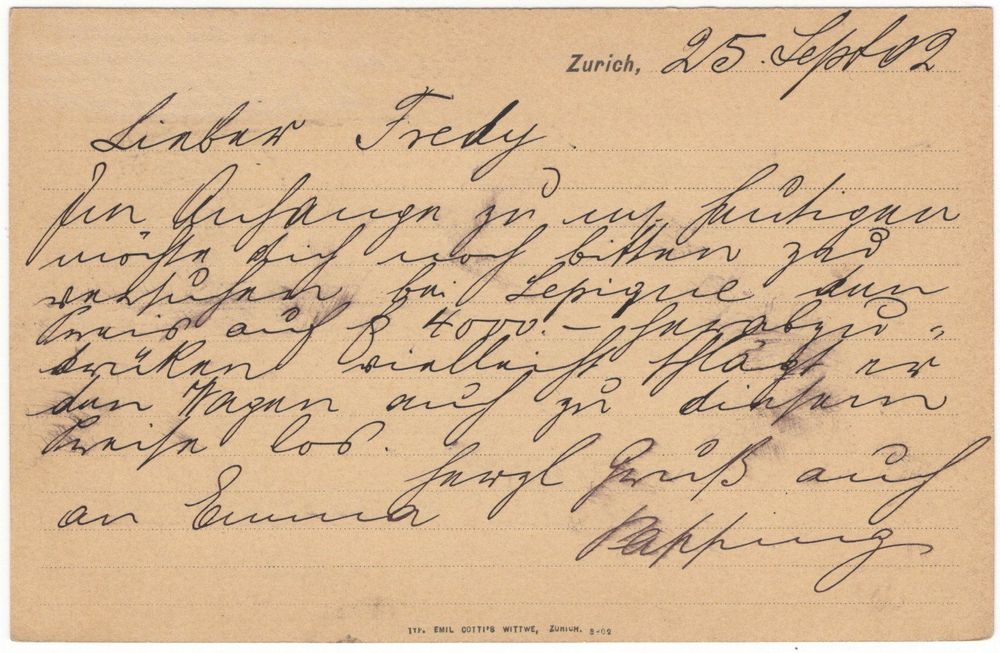 Zurich, 25. Sept 02
Lieber Fredy.
Im Anhange zu m/ heutigen
möchte dich noch bitten zu
versuchen bei Lepique den
Preis auf 4000.– herabzu-
drücken vielleicht schlägt er
den Wagen auch zu diesem
Preise los.
herzl Gruß auch
an Emma
TYP. EMIL COTTI'S WITTWE, ZÜRICH. 8-02